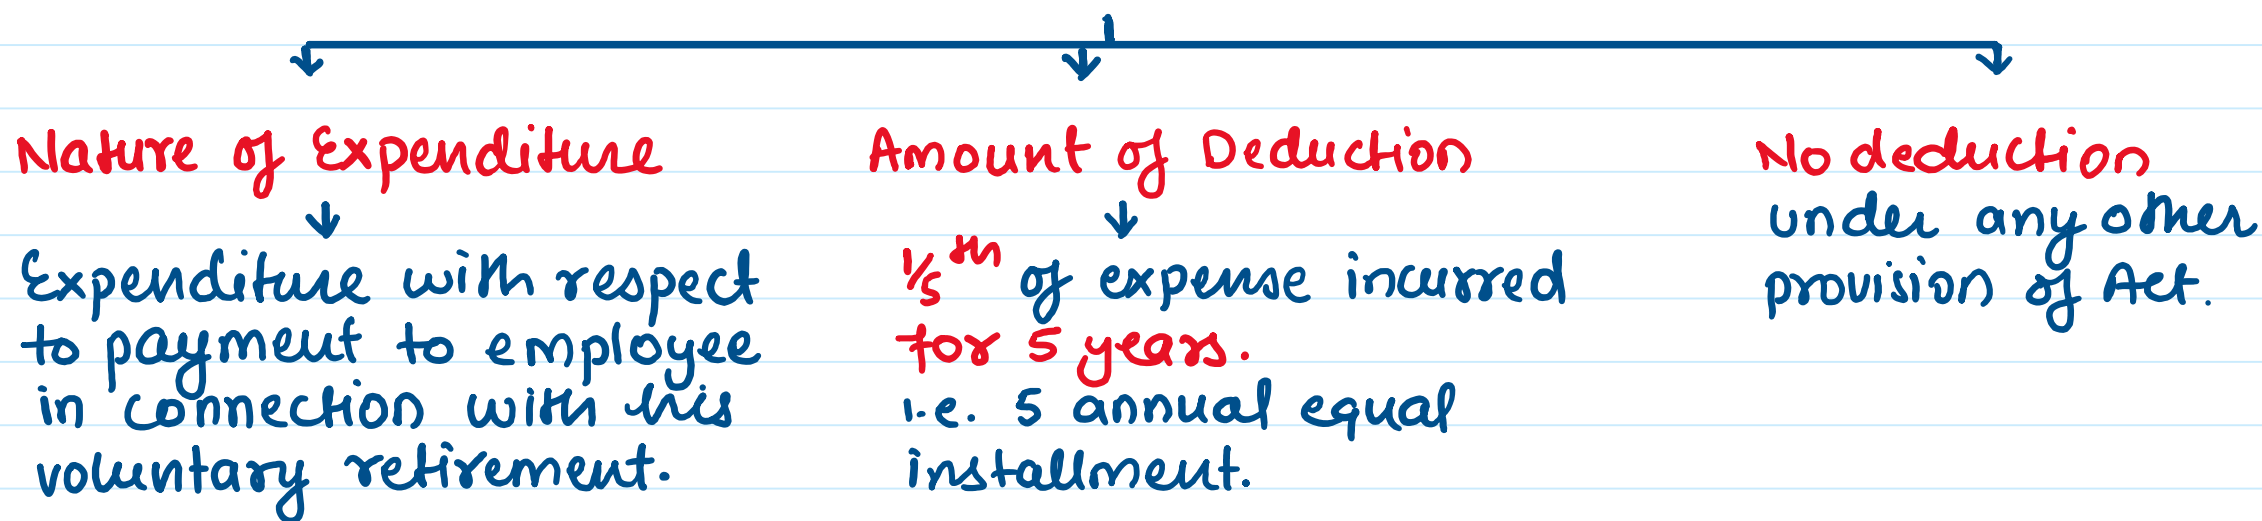 Nature of Expenditure
Expenditure with respect
to payment to employee
in connection with his
voluntary retirement.
Amount of Deduction
1/5th of expense incurred
for 5 years.
i.e. 5 annual equal
installment.
No deduction
under any other
provision of Act.